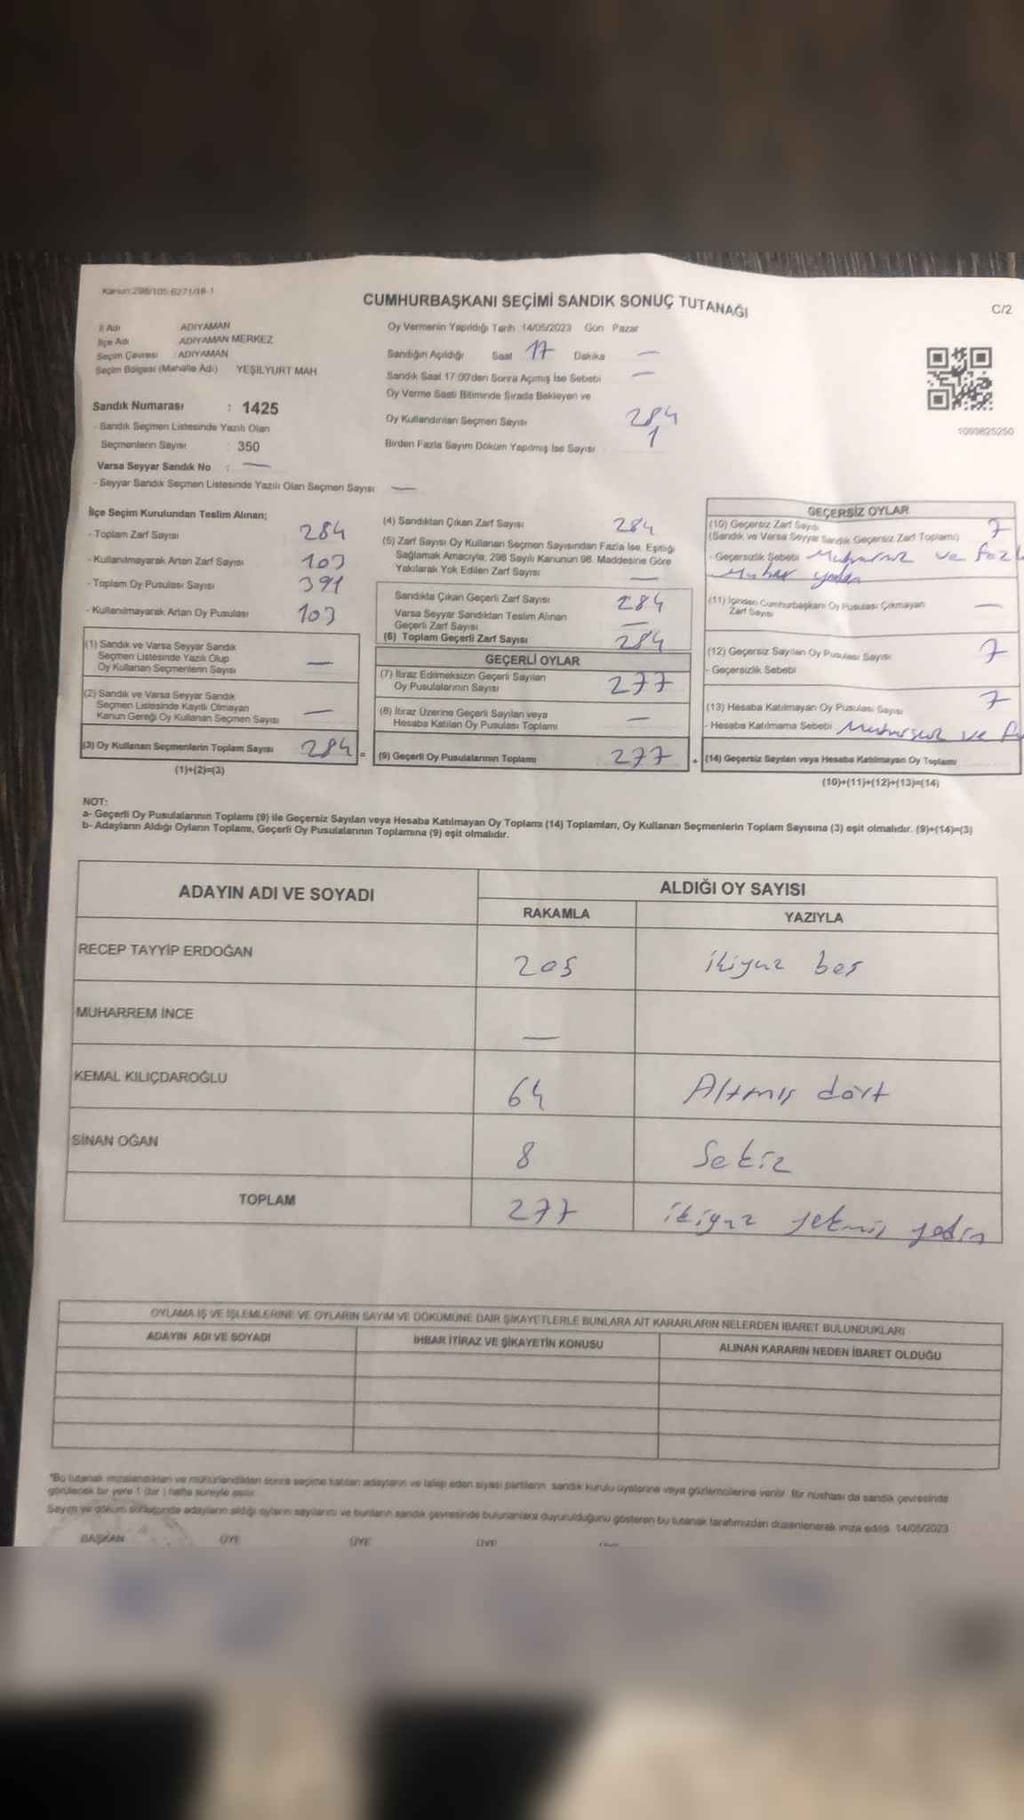 Kanun:298/105-6271/18-1
CUMHURBAŞKANI SEÇİMİ SANDIK SONUÇ TUTANAĞI
C/2
İl Adı ADIYAMAN
İlçe Adı ADIYAMAN MERKEZ
Seçim Çevresi : ADIYAMAN
Seçim Bölgesi (Mahalle Adı) YEŞİLYURT MAH
Sandık Numarası : 1425
- Sandık Seçmen Listesinde Yazılı Olan
Seçmenlerin Sayısı : 350
Varsa Seyyar Sandık No : —
- Seyyar Sandık Seçmen Listesinde Yazılı Olan Seçmen Sayısı —
Oy Vermenin Yapıldığı Tarih 14/05/2023 Gün Pazar
Sandığın Açıldığı Saat 17 Dakika —
Sandık Saat 17:00'den Sonra Açılmış İse Sebebi —
Oy Verme Saati Bitiminde Sırada Bekleyen ve
Oy Kullandırılan Seçmen Sayısı 284
Birden Fazla Sayım Döküm Yapılmış İse Sayısı 1
1099825250
İlçe Seçim Kurulundan Teslim Alınan;
- Toplam Zarf Sayısı 284
- Kullanılmayarak Artan Zarf Sayısı 103
- Toplam Oy Pusulası Sayısı 391
- Kullanılmayarak Artan Oy Pusulası 103
(1) Sandık ve Varsa Seyyar Sandık
Seçmen Listesinde Yazılı Olup
Oy Kullanan Seçmenlerin Sayısı —
(2) Sandık ve Varsa Seyyar Sandık
Seçmen Listesinde Kayıtlı Olmayan
Kanun Gereği Oy Kullanan Seçmen Sayısı —
(3) Oy Kullanan Seçmenlerin Toplam Sayısı 284 =
(1)+(2)=(3)
(4) Sandıktan Çıkan Zarf Sayısı 284
(5) Zarf Sayısı Oy Kullanan Seçmen Sayısından Fazla İse, Eşitliği
Sağlamak Amacıyla, 298 Sayılı Kanunun 98. Maddesine Göre
Yakılarak Yok Edilen Zarf Sayısı —
Sandıkta Çıkan Geçerli Zarf Sayısı 284
Varsa Seyyar Sandıktan Teslim Alınan
Geçerli Zarf Sayısı —
(6) Toplam Geçerli Zarf Sayısı 284
GEÇERLİ OYLAR
(7) İtiraz Edilmeksizin Geçerli Sayılan
Oy Pusulalarının Sayısı 277
(8) İtiraz Üzerine Geçerli Sayılan veya
Hesaba Katılan Oy Pusulası Toplamı —
(9) Geçerli Oy Pusulalarının Toplamı 277 +
GEÇERSİZ OYLAR
(10) Geçersiz Zarf Sayısı 7
(Sandık ve Varsa Seyyar Sandık Geçersiz Zarf Toplamı)
- Geçersizlik Sebebi Mühürsüz ve fazl
(11) İçinden Cumhurbaşkanı Oy Pusulası Çıkmayan
Zarf Sayısı —
(12) Geçersiz Sayılan Oy Pusulası Sayısı 7
- Geçersizlik Sebebi
(13) Hesaba Katılmayan Oy Pusulası Sayısı 7
- Hesaba Katılmama Sebebi Mühürsüz ve
(14) Geçersiz Sayılan veya Hesaba Katılmayan Oy Toplamı
(10)+(11)+(12)+(13)=(14)
NOT:
a- Geçerli Oy Pusulalarının Toplamı (9) ile Geçersiz Sayılan veya Hesaba Katılmayan Oy Toplamı (14) Toplamları, Oy Kullanan Seçmenlerin Toplam Sayısına (3) eşit olmalıdır. (9)+(14)=(3)
b- Adayların Aldığı Oyların Toplamı, Geçerli Oy Pusulalarının Toplamına (9) eşit olmalıdır.
ADAYIN ADI VE SOYADI
ALDIĞI OY SAYISI
RAKAMLA YAZIYLA
RECEP TAYYİP ERDOĞAN 205 ikiyüz beş
MUHARREM İNCE —
KEMAL KILIÇDAROĞLU 64 Altmış dört
SİNAN OĞAN 8 Sekiz
TOPLAM 277 ikiyüz yetmiş yedi
OYLAMA İŞ VE İŞLEMLERİNE VE OYLARIN SAYIM VE DÖKÜMÜNE DAİR ŞİKAYETLERLE BUNLARA AİT KARARLARIN NELERDEN İBARET BULUNDUKLARI
ADAYIN ADI VE SOYADI İHBAR İTİRAZ VE ŞİKAYETİN KONUSU ALINAN KARARIN NEDEN İBARET OLDUĞU
*Bu tutanak imzalandıktan ve mühürlendikten sonra seçime katılan adayların ve talep eden siyasi partilerin sandık kurulu üyelerine veya gözlemcilerine verilir. Bir nüshası da sandık çevresinde
görülecek bir yere 1 (bir) hafta süreyle asılır.
Sayım ve döküm sonucunda adayların aldığı oyların sayılarını ve bunların sandık çevresinde bulunanlara duyurulduğunu gösteren bu tutanak tarafımızdan düzenlenerek imza edildi. 14/05/2023
BAŞKAN ÜYE ÜYE ÜYE